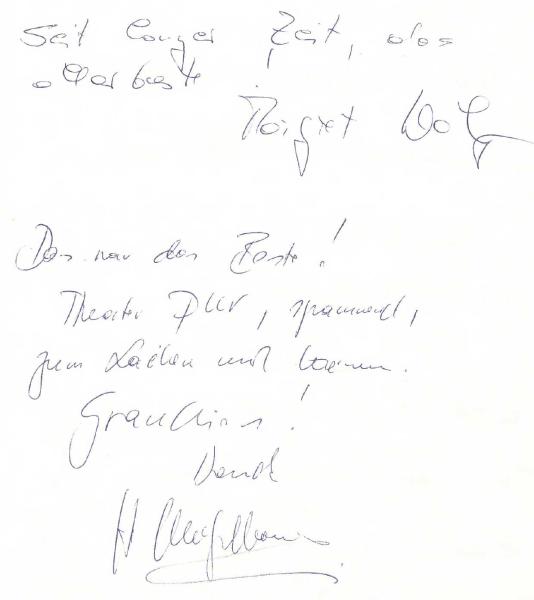 Seit langer Zeit, das
allerbeste
Margret Wolf
Das war das Beste!
Theater PUR, spannend,
zum Lachen und Weinen.
Grandios!
Dank
H